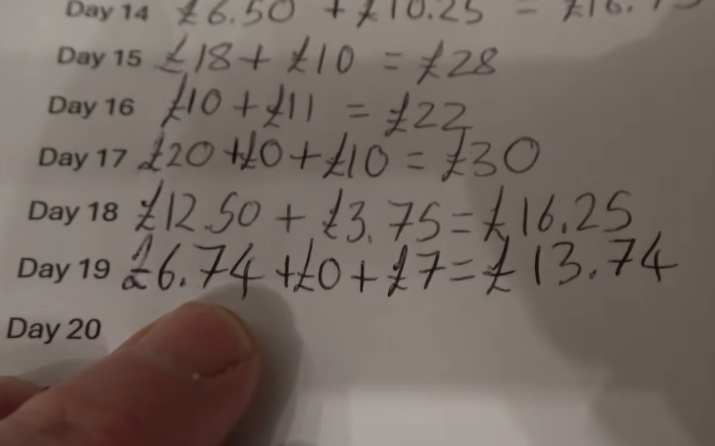 Day 14 £6.50 + £10.25 = £16.75
Day 15 £18 + £10 = £28
Day 16 £10 + £11 = £22
Day 17 £20 + £0 + £10 = £30
Day 18 £12.50 + £3.75 = £16.25
Day 19 £6.74 + £0 + £7 = £13.74
Day 20